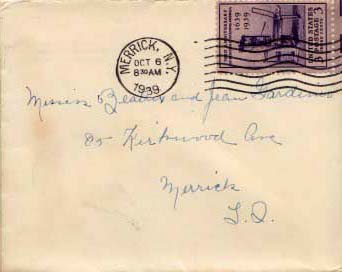 MERRICK, N.Y.
OCT 6
8 30 AM
1939
1639
1939
UNITED STATES
POSTAGE
3
Misses Beatrice and Jean Gardiner
85 Kirkwood Ave
Merrick
L.I.